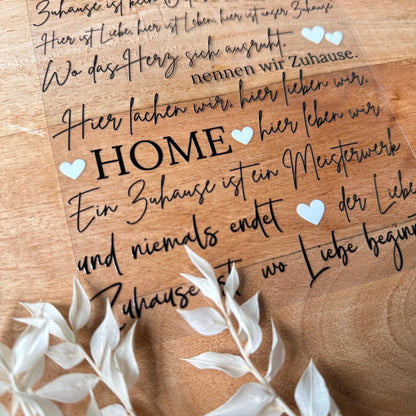 Zuhause ist kein
Hier ist Liebe, hier ist Leben, hier ist unser Zuhause.
Wo das Herz sich ausruht.
nennen wir Zuhause.
Hier lachen wir, hier lieben wir,
HOME hier leben wir
Ein Zuhause ist ein Meisterwerk
und niemals endet der Liebe
Zuhause ist, wo Liebe beginn